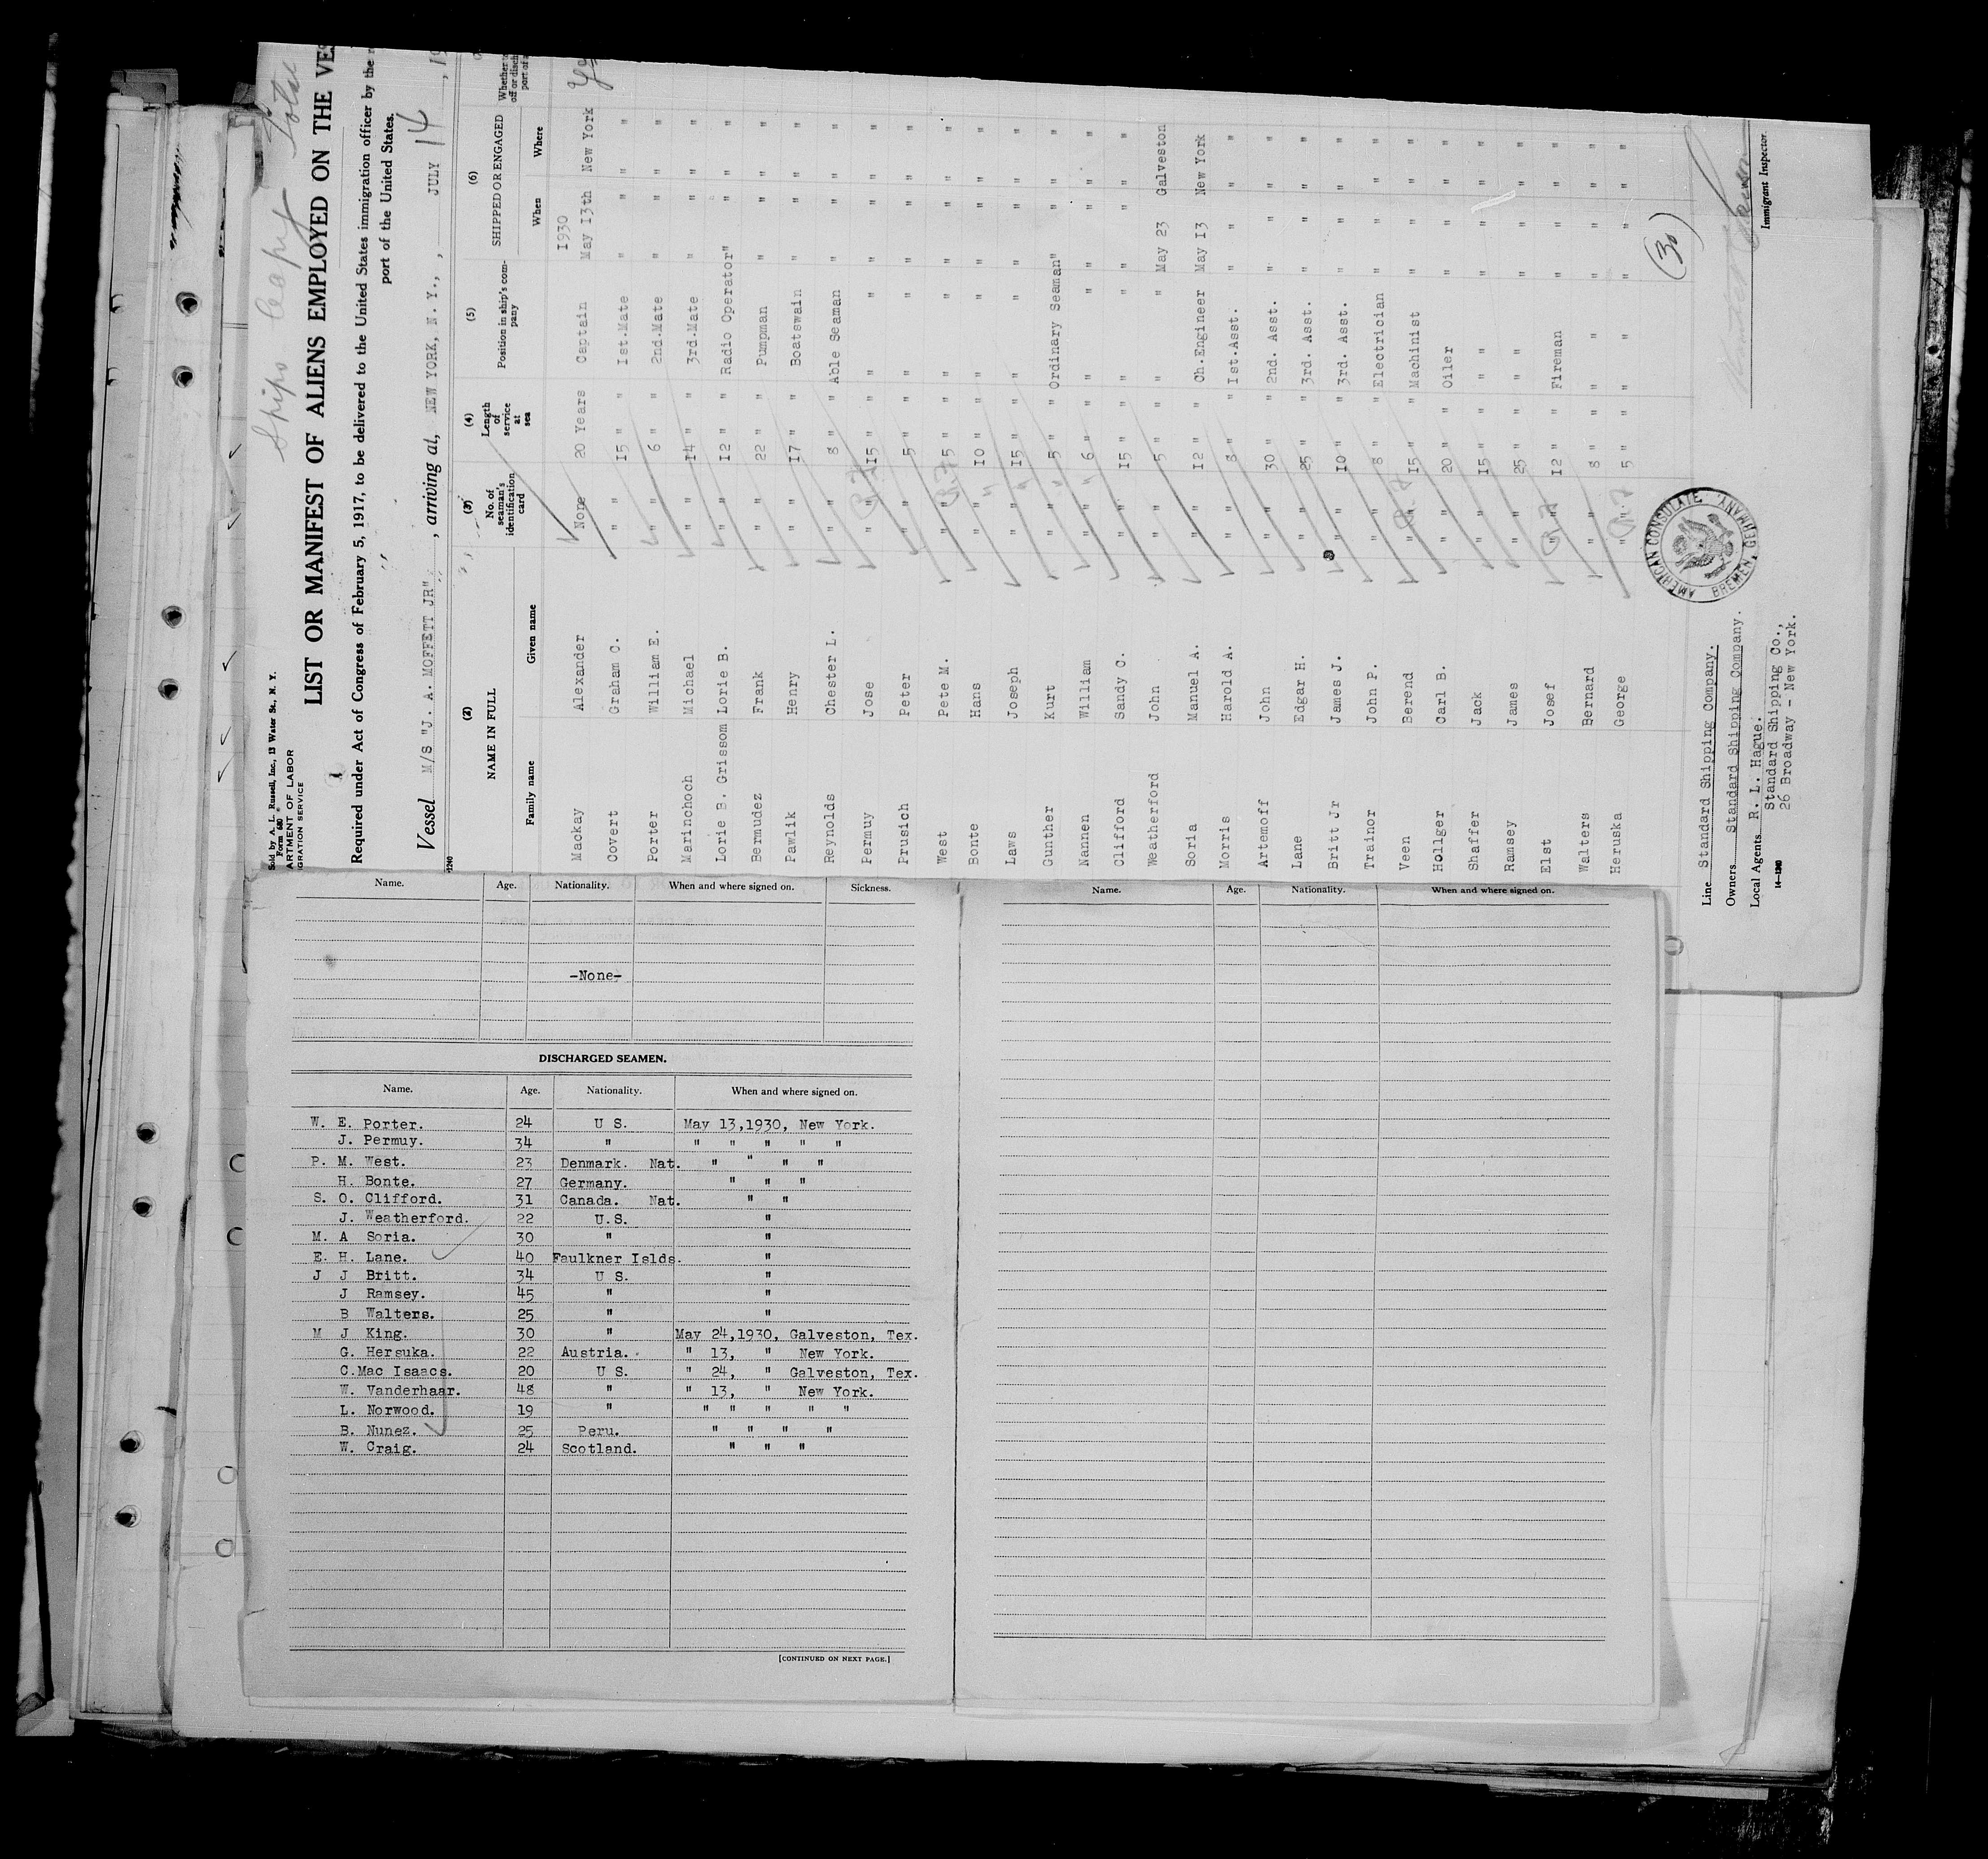 Ships Copy Total
Sold by A. L. Russell, Inc., 13 Water St., N. Y.
Form 680
ARTMENT OF LABOR
GRATION SERVICE
LIST OR MANIFEST OF ALIENS EMPLOYED ON THE VES
Required under Act of Congress of February 5, 1917, to be delivered to the United States immigration officer by the
port of the United States.
Vessel M/S "J. A. MOFFETT JR", arriving at, NEW YORK, N. Y., , JULY 14, 19
(2) (3) (4) (5) (6)
NAME IN FULL No. of seaman's identification card Length of service at sea Position in ship's company SHIPPED OR ENGAGED
Family name Given name When Where
1930
Mackay Alexander None 20 Years Captain May 13th New York
Covert Graham C. " " 15 " " 1st.Mate " " " "
Porter William E. " " 6 " " 2nd.Mate " " "
Marinchoch Michael " " 14 " " 3rd.Mate " " " "
Lorie B. Grissom Lorie B. " " 12 " " Radio Operator" " " "
Bermudez Frank " " 22 " " Pumpman " " " "
Pawlik Henry " " 17 " " Boatswain " " " "
Reynolds Chester L. " " 8 " " Able Seaman " " " "
Permuy Jose " " 15 " " " " " " " "
Prusich Peter " " 5 " " " " " " " "
West Pete M. " " 5 " " " " " " " "
Bonte Hans " " 10 " " " " " " " "
Laws Joseph " " 15 " " " " " " " "
Gunther Kurt " " 5 " " Ordinary Seaman" " " "
Nannen William " " 6 " " " " " " " "
Clifford Sandy C. " " 15 " " " " " " " "
Weatherford John " " 5 " " " " May 23 Galveston
Soria Manuel A. " " 12 " " Ch.Engineer May 13 New York
Morris Harold A. " " 8 " " 1st.Asst. " " " "
Artemoff John " " 30 " " 2nd. Asst. " " " "
Lane Edgar H. " " 25 " " 3rd. Asst. " " " "
Britt Jr James J. " " 10 " " 3rd. Asst. " " " "
Trainor John P. " " 8 " " Electrician " " " "
Veen Berend " " 15 " " Machinist " " " "
Hollger Carl B. " " 20 " " Oiler " " " "
Shaffer Jack " " 15 " " " " " " " "
Ramsey James " " 25 " " " " " " " "
Elst Josef " " 12 " " Fireman " " " "
Walters Bernard " " 8 " " " " " " " "
Heruska George " " 5 " " " " " " " "
(30)
AMERICAN CONSULATE
BREMEN, GERMANY.
Line Standard Shipping Company.
Owners Standard Shipping Company.
Local Agents R. L. Hague.
Standard Shipping Co.,
26 Broadway - New York.
14-1240
Immigrant Inspector.
Name. Age. Nationality. When and where signed on. Sickness.
-None-
DISCHARGED SEAMEN.
Name. Age. Nationality. When and where signed on.
W. E. Porter. 24 U S. May 13,1930, New York.
J. Permuy. 34 " " " " " "
P. M. West. 23 Denmark. Nat. " " " "
H. Bonte. 27 Germany. " " "
S. O. Clifford. 31 Canada. Nat. " "
J. Weatherford. 22 U.S. "
M. A Soria. 30 " "
E. H. Lane. 40 Faulkner Islds. "
J J Britt. 34 U S. "
J Ramsey. 45 " "
B Walters. 25 " "
M J King. 30 " May 24,1930, Galveston, Tex.
G. Hersuka. 22 Austria. " 13, " New York.
C.Mac Isaacs. 20 U S. " 24, " Galveston, Tex.
W. Vanderhaar. 48 " " 13, " New York.
L. Norwood. 19 " " " " " "
B. Nunez. 25 Peru. " " " "
W. Craig. 24 Scotland. " " "
[CONTINUED ON NEXT PAGE.]
Name. Age. Nationality. When and where signed on.